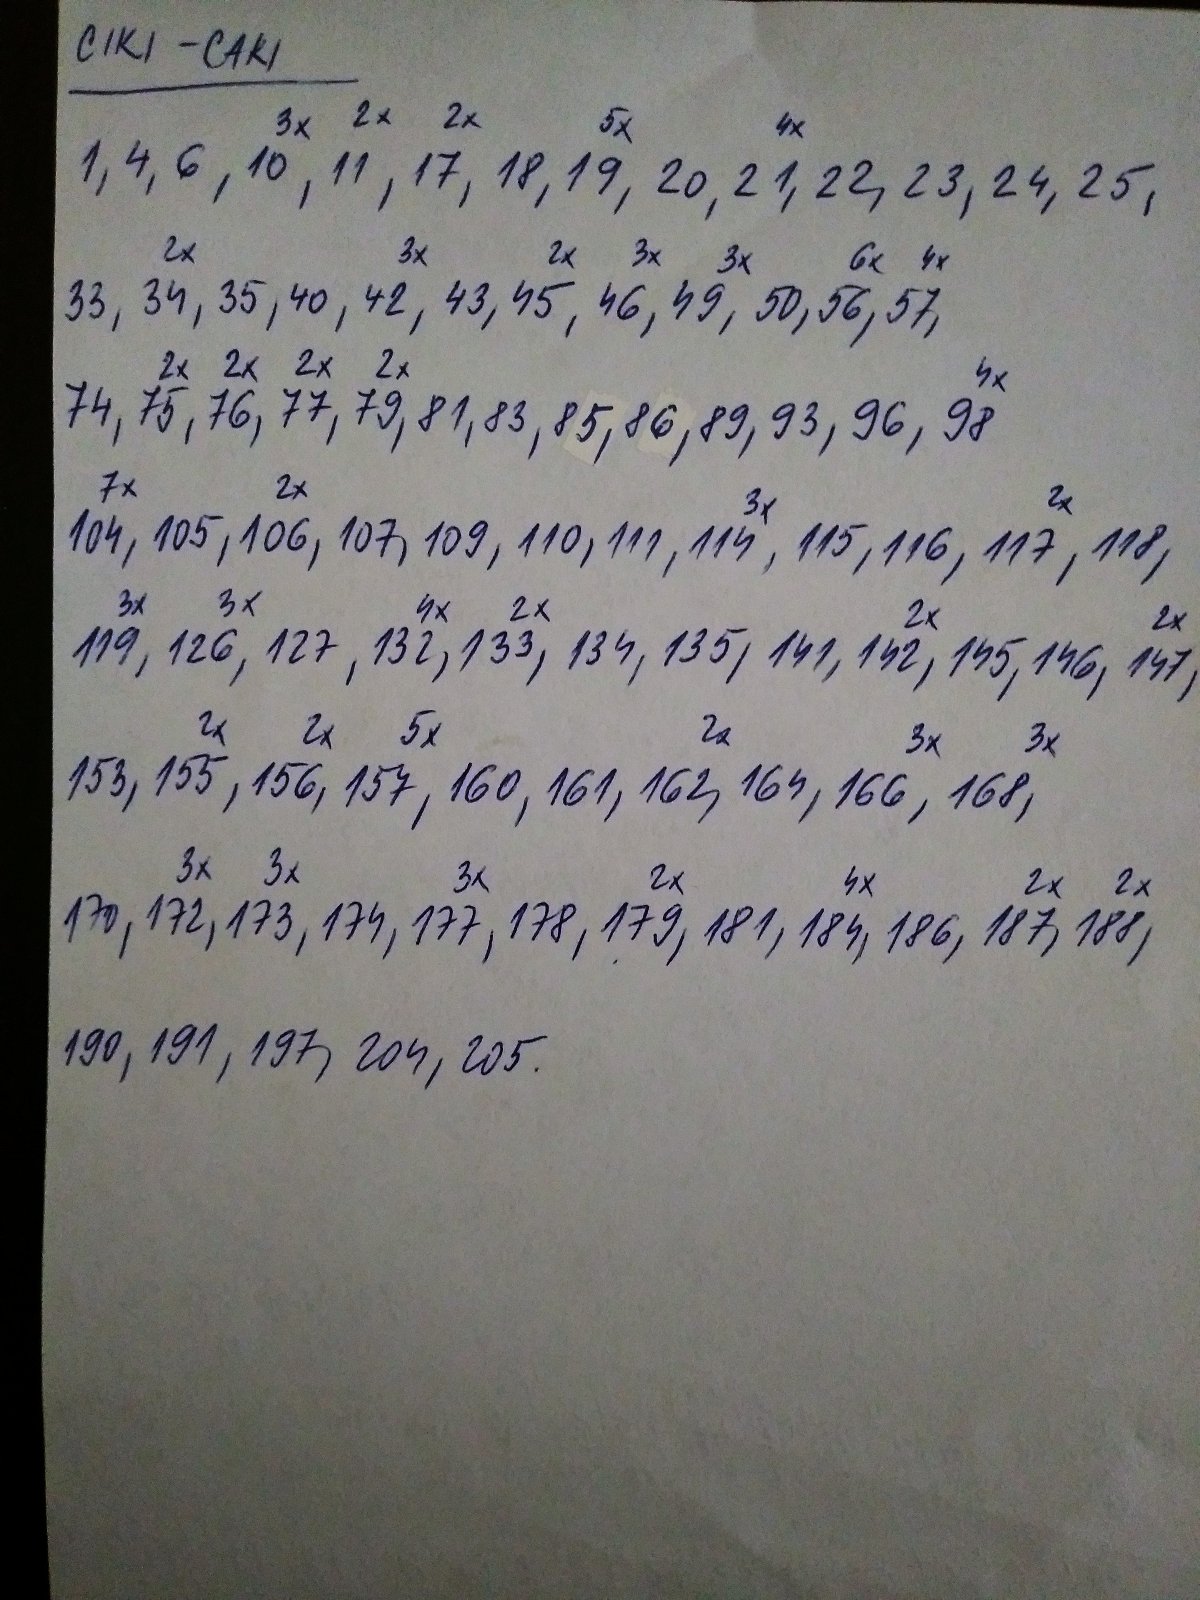 CIKI - CAKI
3x 2x 2x 5x 4x
1, 4, 6, 10, 11, 17, 18, 19, 20, 21, 22, 23, 24, 25,
2x 3x 2x 3x 3x 6x 4x
33, 34, 35, 40, 42, 43, 45, 46, 49, 50, 56, 57,
2x 2x 2x 2x 4x
74, 75, 76, 77, 79, 81, 83, 85, 86, 89, 93, 96, 98
7x 2x 3x 2x
104, 105, 106, 107, 109, 110, 111, 114, 115, 116, 117, 118,
3x 3x 4x 2x 2x 2x
119, 126, 127, 132, 133, 134, 135, 141, 142, 145, 146, 147,
2x 2x 5x 2x 3x 3x
153, 155, 156, 157, 160, 161, 162, 164, 166, 168,
3x 3x 3x 2x 4x 2x 2x
170, 172, 173, 174, 177, 178, 179, 181, 184, 186, 187, 188,
190, 191, 197, 204, 205.